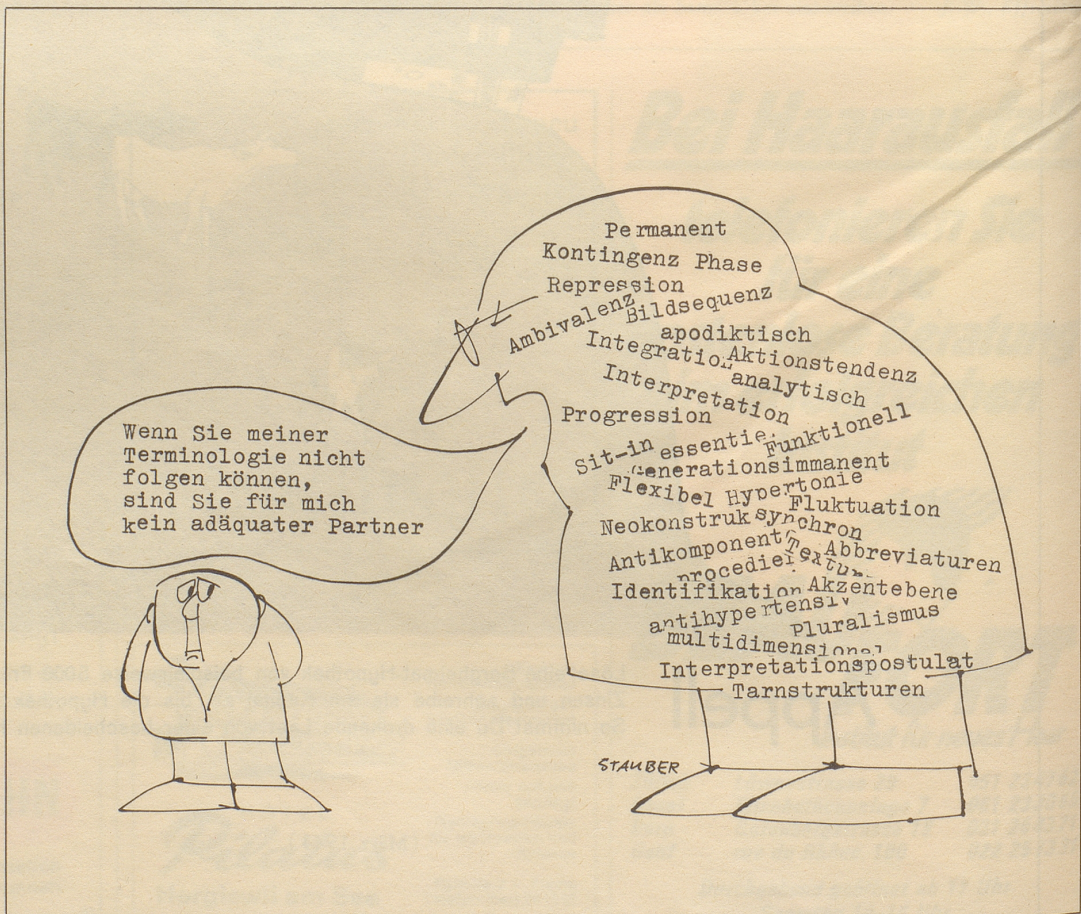 Wenn Sie meiner
Terminologie nicht
folgen können,
sind Sie für mich
kein adäquater Partner
Permanent
Kontingenz Phase
Repression
Ambivalenz
Bildsequenz
apodiktisch
Integratio
Aktionstendenz
analytisch
Interpretation
Progression
Funktionell
Sit-in
essentie
Generationsimmanent
Flexibel Hypertonie
Fluktuation
Neokonstruk
synchron
Antikomponent
Textu
Abbreviaturen
procedier
Identifikation
Akzentebene
antihypertensiv
Pluralismus
multidimensional
Interpretationspostulat
Tarnstrukturen
STAUBER